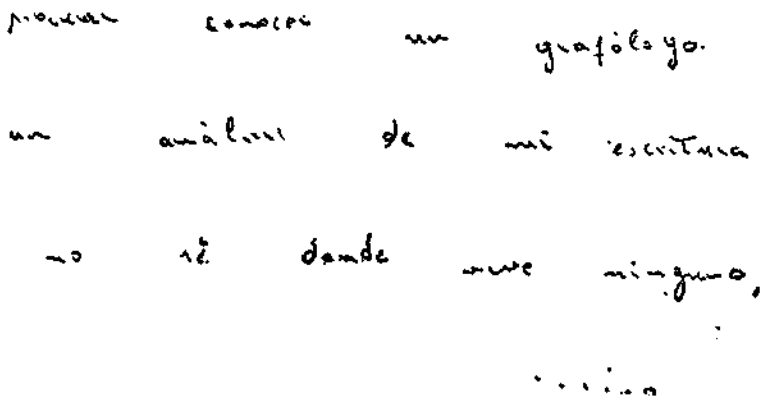 conocer un grafólogo.
un análisis de mi escritura
no sé donde vive ninguno,